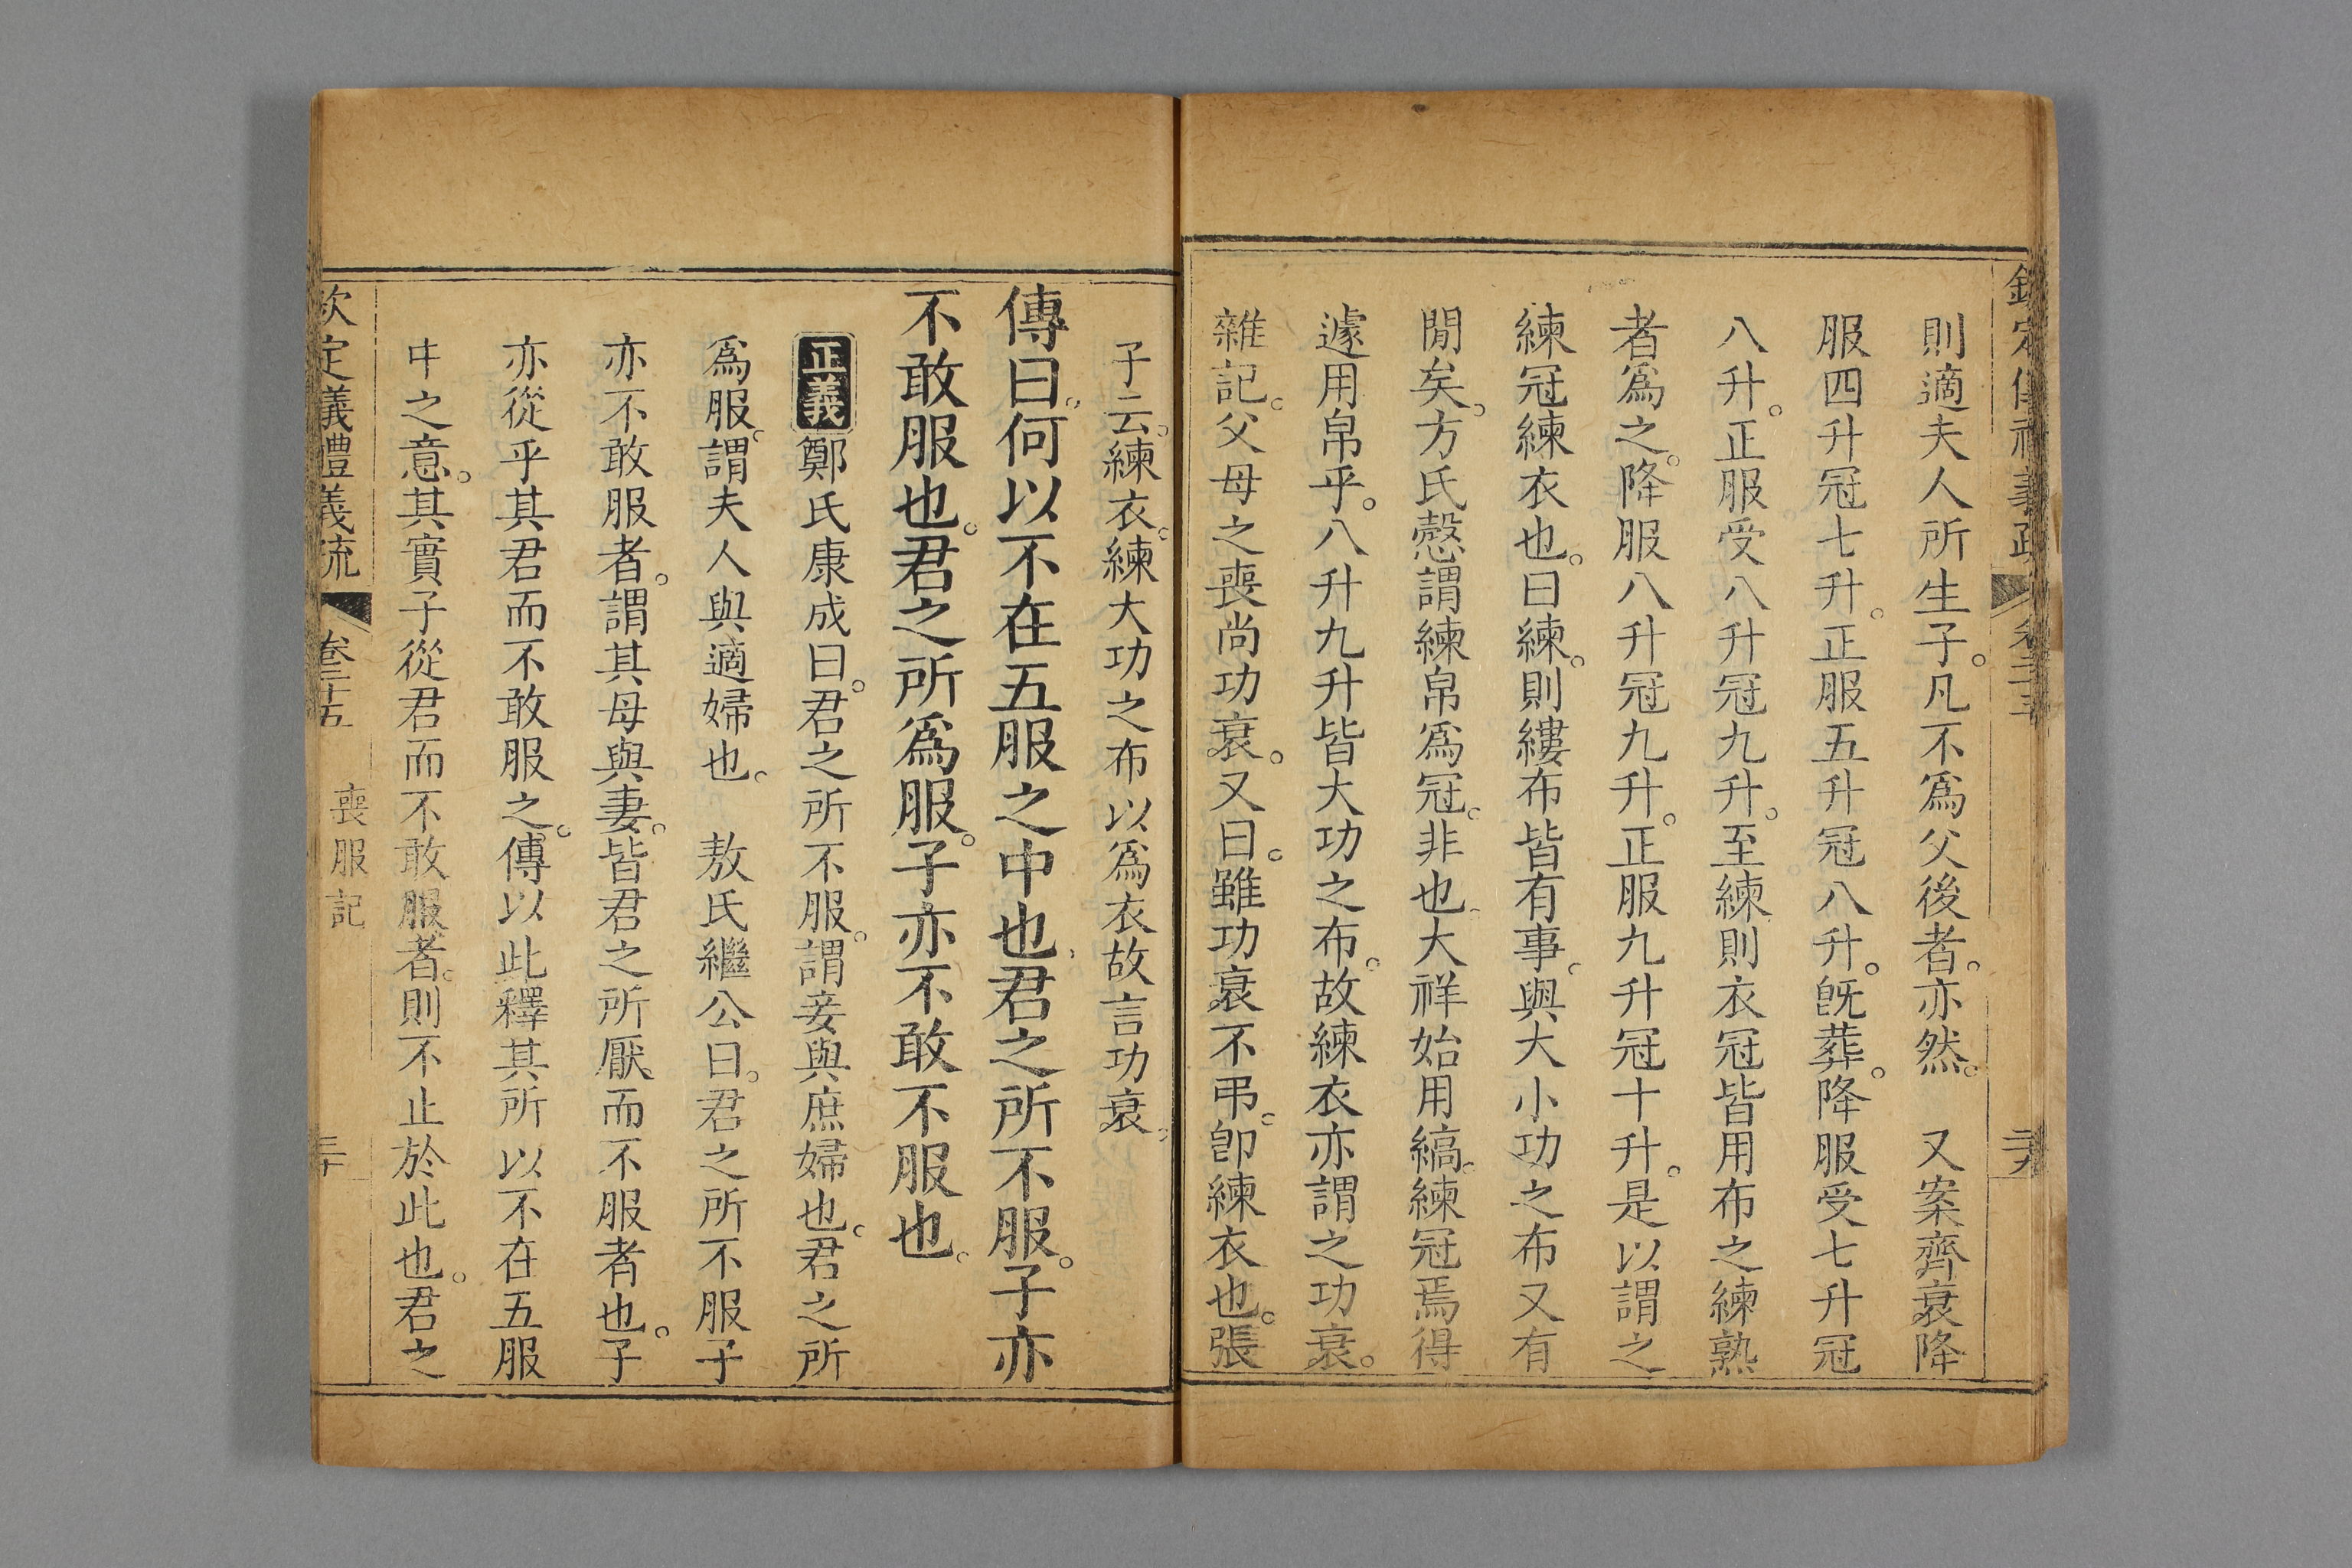 欽定儀禮義疏 卷二十五 二十九
則適夫人所生子。凡不爲父後者。亦然。 又案齊衰降
服四升冠七升。正服五升冠八升。旣葬。降服受七升冠
八升。正服受八升冠九升。至練則衣冠皆用布之練熟
者爲之。降服八升冠九升。正服九升冠十升。是以謂之
練冠練衣也。曰練。則縷布皆有事。與大小功之布又有
閒矣。方氏慤謂練帛爲冠。非也。大祥始用縞。練冠焉得
遽用帛乎。八升九升皆大功之布。故練衣亦謂之功衰。
雜記。父母之喪尚功衰。又曰。雖功衰不弔。卽練衣也。張
子云。練衣。練大功之布以爲衣故言功衰。
傳曰。何以不在五服之中也。君之所不服。子亦
不敢服也。君之所爲服。子亦不敢不服也。
正義 鄭氏康成曰。君之所不服。謂妾與庶婦也。君之所
爲服。謂夫人與適婦也。 敖氏繼公曰。君之所不服子
亦不敢服者。謂其母與妻。皆君之所厭而不服者也。子
亦從乎其君而不敢服之。傳以此釋其所以不在五服
中之意。其實子從君而不敢服者。則不止於此也。君之
欽定儀禮義疏 卷二十五 喪服記 三十